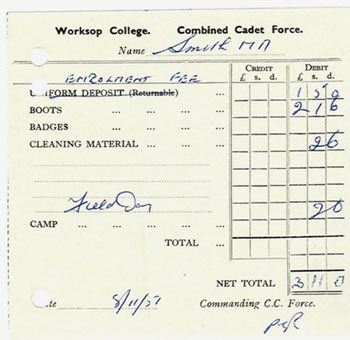 Worksop College. Combined Cadet Force.
Name Smith MA
CREDIT DEBIT
£ s. d. £ s. d.
ENROLMENT FEE
UNIFORM DEPOSIT (Returnable) ... 1 5 0
BOOTS ... ... ... ... 2 1 6
BADGES ... ... ... ...
CLEANING MATERIAL ... ... ... 2 6
Field Day 2 0
CAMP ... ... ... ... ...
TOTAL ...
NET TOTAL 3 11 0
Date 8/11/57 Commanding C.C. Force.